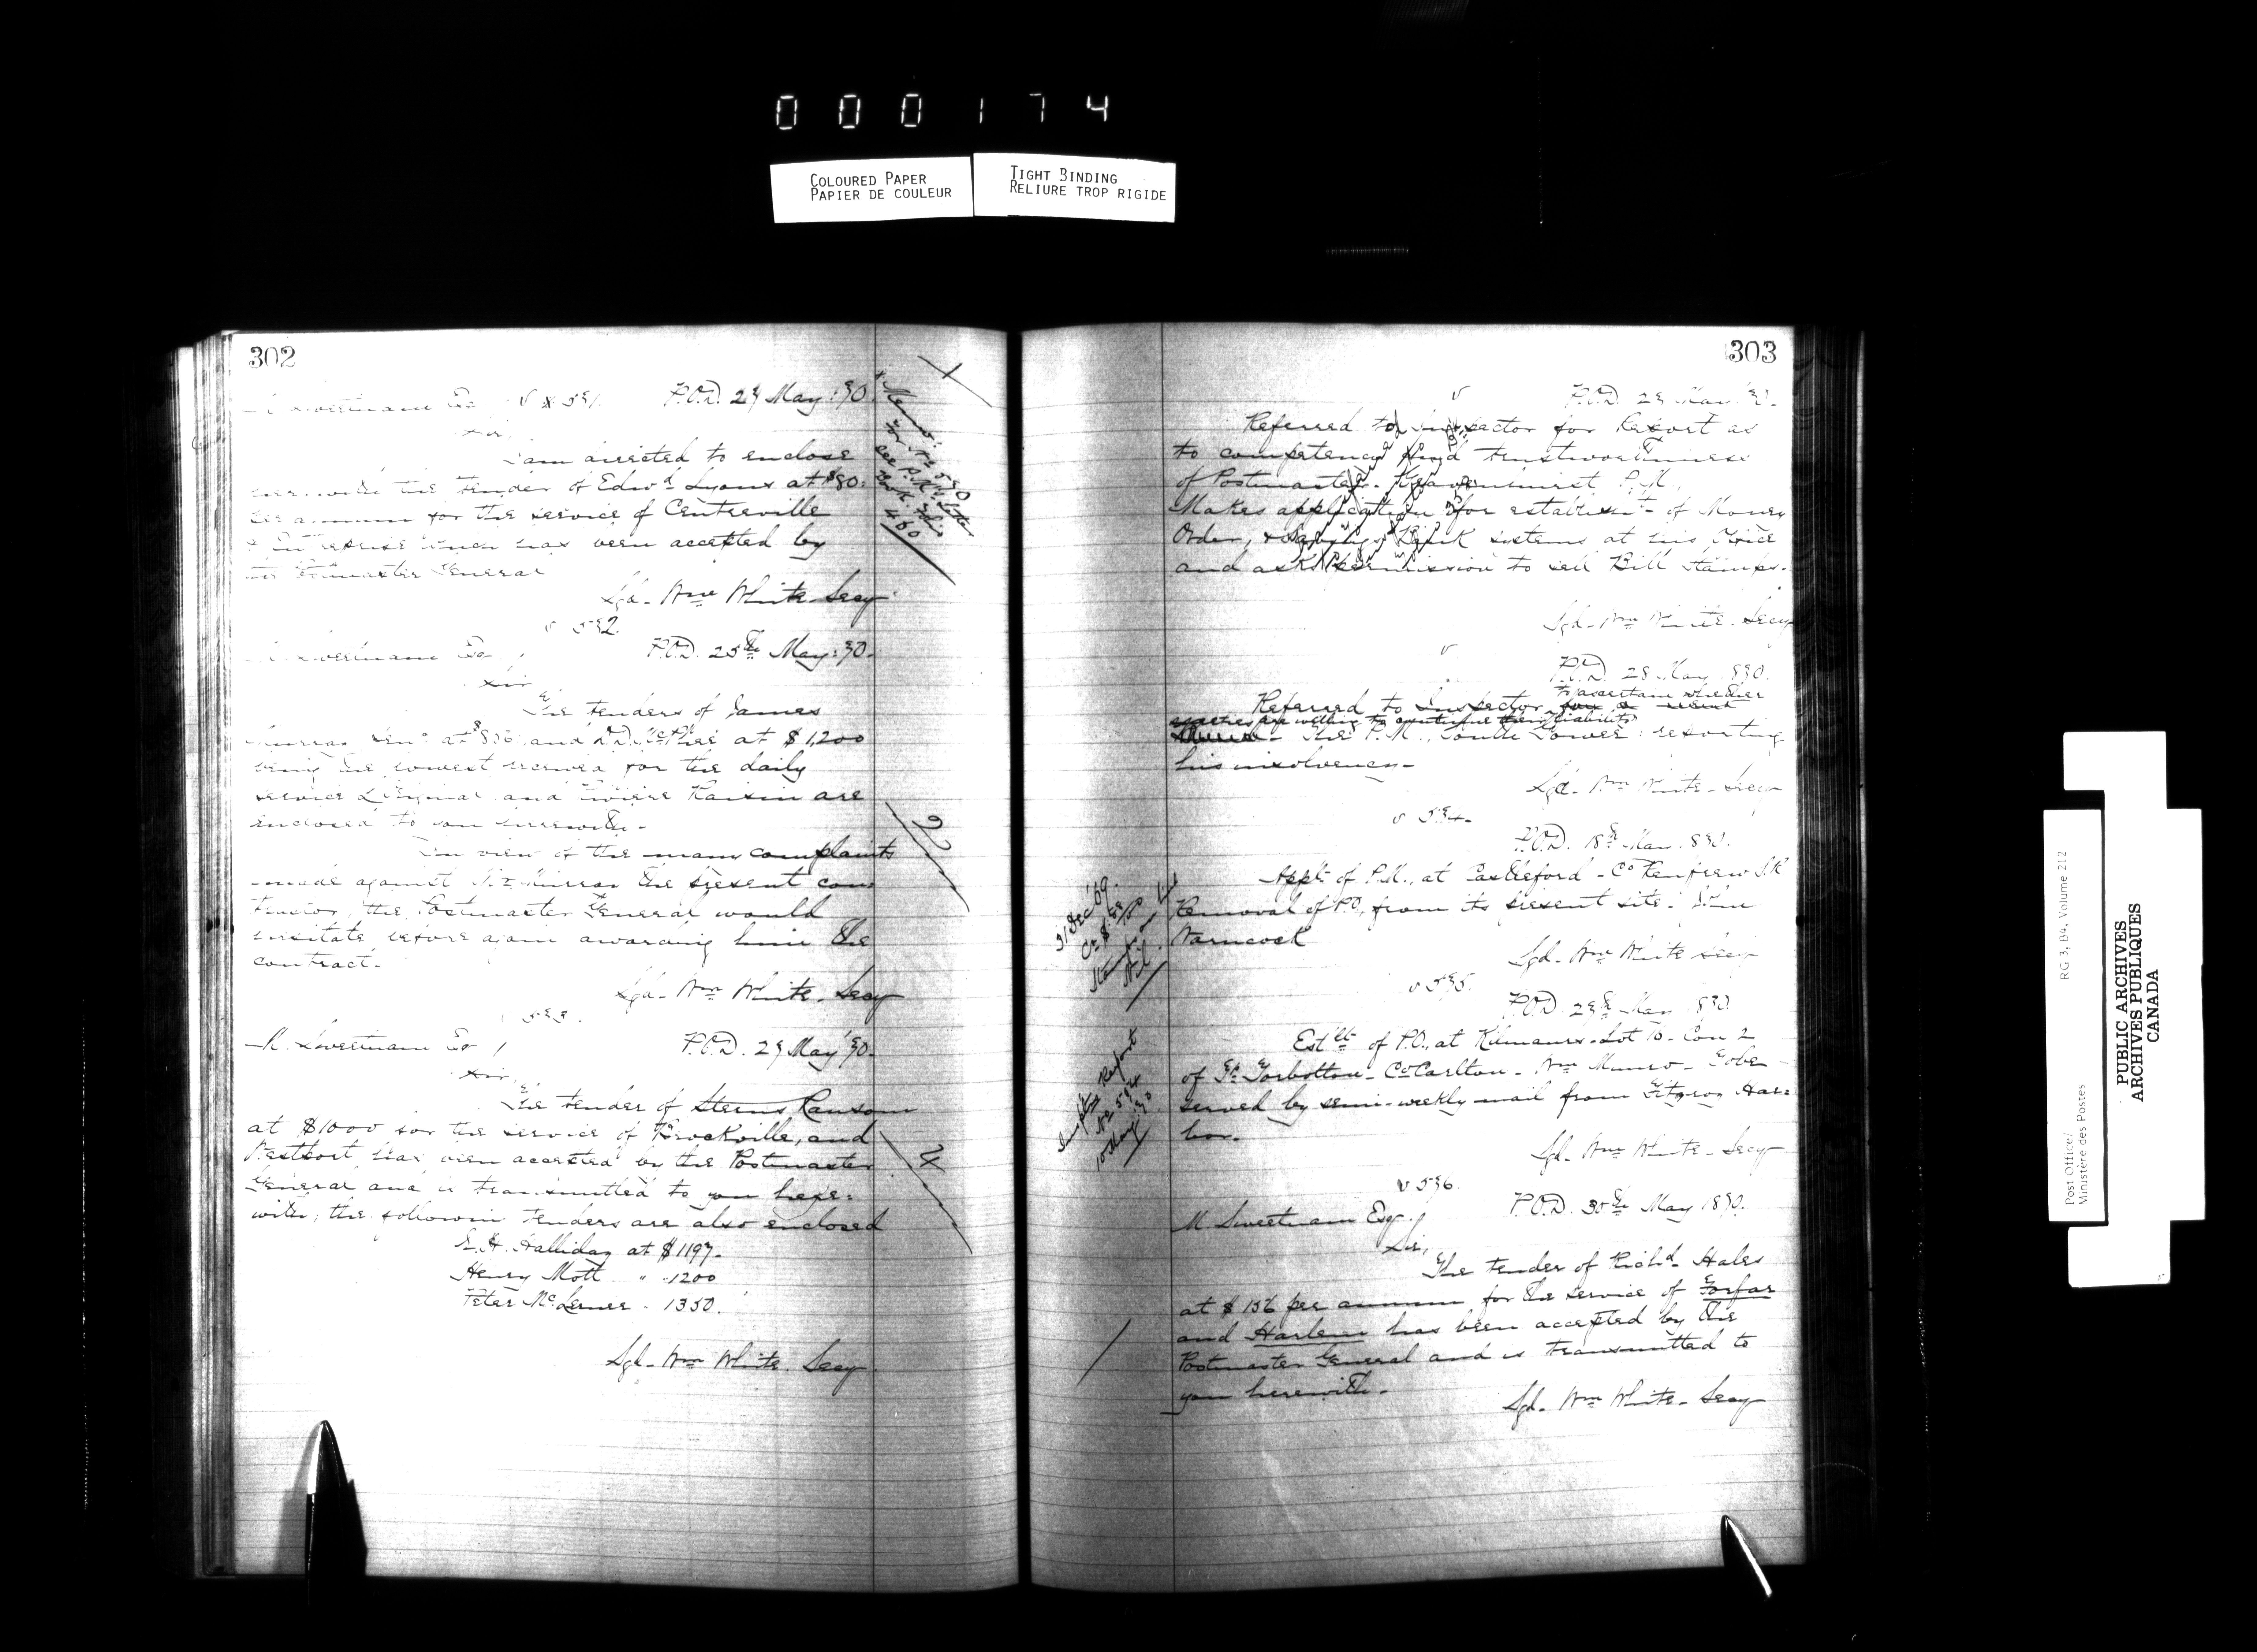 000174
COLOURED PAPER
PAPIER DE COULEUR
TIGHT BINDING
RELIURE TROP RIGIDE
302
Sweetnam Esq 571. P.O.D. 27 May '70.
Sir,
I am directed to enclose
herewith the tender of Edwd Lyons at $80
per annum for the service of Centreville
& Enterprise which has been accepted by
the Postmaster General
Sgd. Wm White Secy
Memo:
see P.M. letter
Book
460
572.
Sweetnam Esq P.O.D. 25th May: 70.
Sir
The tenders of James
and at $1,200
being the lowest received for the daily
service L'Orignal and Riviere Raisin are
enclosed to you herewith.
In view of the many complaints
made against Mr the present con-
tractor, the Postmaster General would
hesitate before again awarding him the
contract.
Sgd. Wm White. Secy
573.
M. Sweetnam Esq P.O.D. 27 May '70.
Sir,
The tender of Sterns Ransom
at $1000 for the service of Brockville, and
Westport has been accepted by the Postmaster
General and is transmitted to you here-
with; the following tenders are also enclosed
Halliday at $1197.
Henry Mott " 1200
Peter 1350.
Sgd. Wm White. Secy
303
P.O.D. 28 May '70.
Referred to Inspector for Report as
to competency and trustworthiness
of Postmaster. P.M.,
Makes application for establisht of Money
Order, & Savings Bank systems at his Office
and asks permission to sell Bill stamps.
Sgd. Wm White. Secy
P.O.D. 28 May 1870.
to ascertain whether
Referred to Inspector for a
sureties are willing to continue their liability
The P.M., South Gower reporting
his insolvency.
Sgd. Wm White. Secy
574.
P.O.D. 18th May 1870.
Appt of P.M., at Castleford - Co Renfrew S.R.
Removal of P.O. from its present site.
Sgd. Wm White Secy
31 Dec '69.
575.
P.O.D. 27th May 1870.
Estlt of P.O., at Kilmaurs. Lot 10. Con 2
of Tp Torbolton - Co Carlton - Wm Munro - to be
served by semi-weekly mail from Fitzroy Har-
bor.
Sgd. Wm White. Secy
Report
10 May '70
576.
P.O.D. 30th May 1870.
M. Sweetnam Esq.
Sir,
The tender of Richd Hales
at $ 156 per annum for the service of Forfar
and Harlem has been accepted by the
Postmaster General and is transmitted to
you herewith.
Sgd. Wm White. Secy
Post Office/ RG 3, B4, Volume 212
Ministère des Postes
PUBLIC ARCHIVES
ARCHIVES PUBLIQUES
CANADA